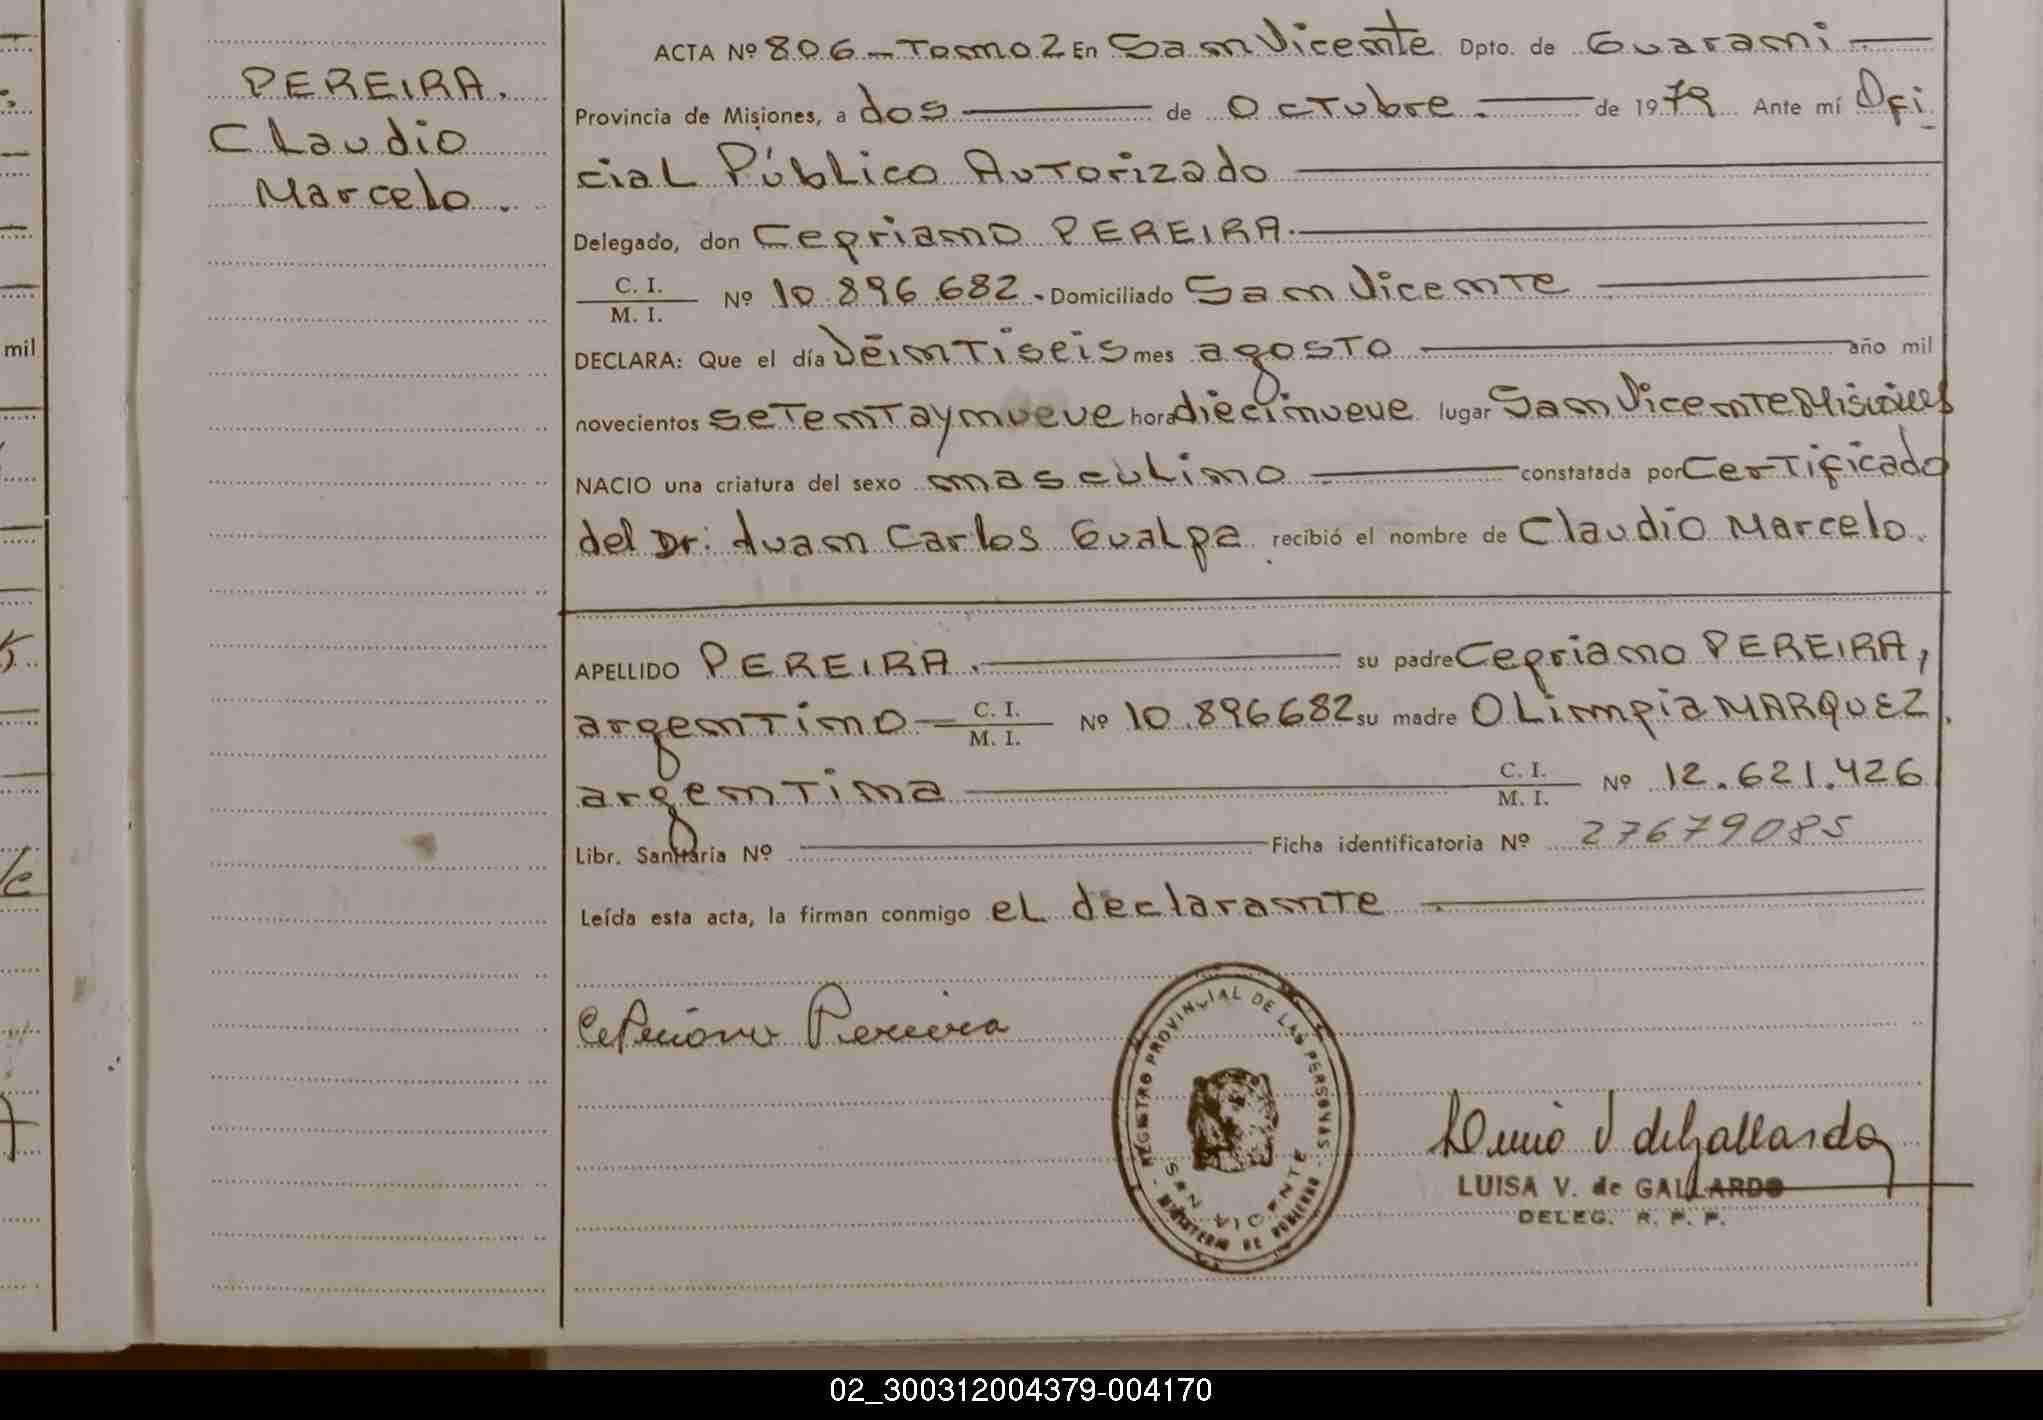 PEREIRA.
Claudio
Marcelo.
ACTA Nº 806 - Tomo 2 En San Vicente Dpto. de Guarani
Provincia de Misiones, a dos de Octubre de 1979 Ante mí Ofi
cial Público Autorizado
Delegado, don Cepriano PEREIRA.
C. I.
M. I. Nº 10.896.682.- Domiciliado San Vicente
DECLARA: Que el día Veintiseis mes agosto año mil
novecientos setenta y nueve hora diecinueve lugar San Vicente Misiones
NACIO una criatura del sexo masculino constatada por Certificado
del Dr. Juan Carlos Gualpa recibió el nombre de Claudio Marcelo.
APELLIDO PEREIRA. su padre Cepriano PEREIRA,
argentino C. I.
M. I. Nº 10.896682 su madre OLimpia MARQUEZ.
argentina C. I.
M. I. Nº 12.621.426
Libr. Sanitaria Nº Ficha identificatoria Nº 27679085
Leída esta acta, la firman conmigo el declarante
Cepriano Pereira
REGISTRO PROVINCIAL DE LAS PERSONAS
SAN VICENTE
MINISTERIO DE GOBIERNO
Luisa V de Gallardo
LUISA V. de GALLARDO
DELEG. R. P. P.
mil
02_300312004379-004170